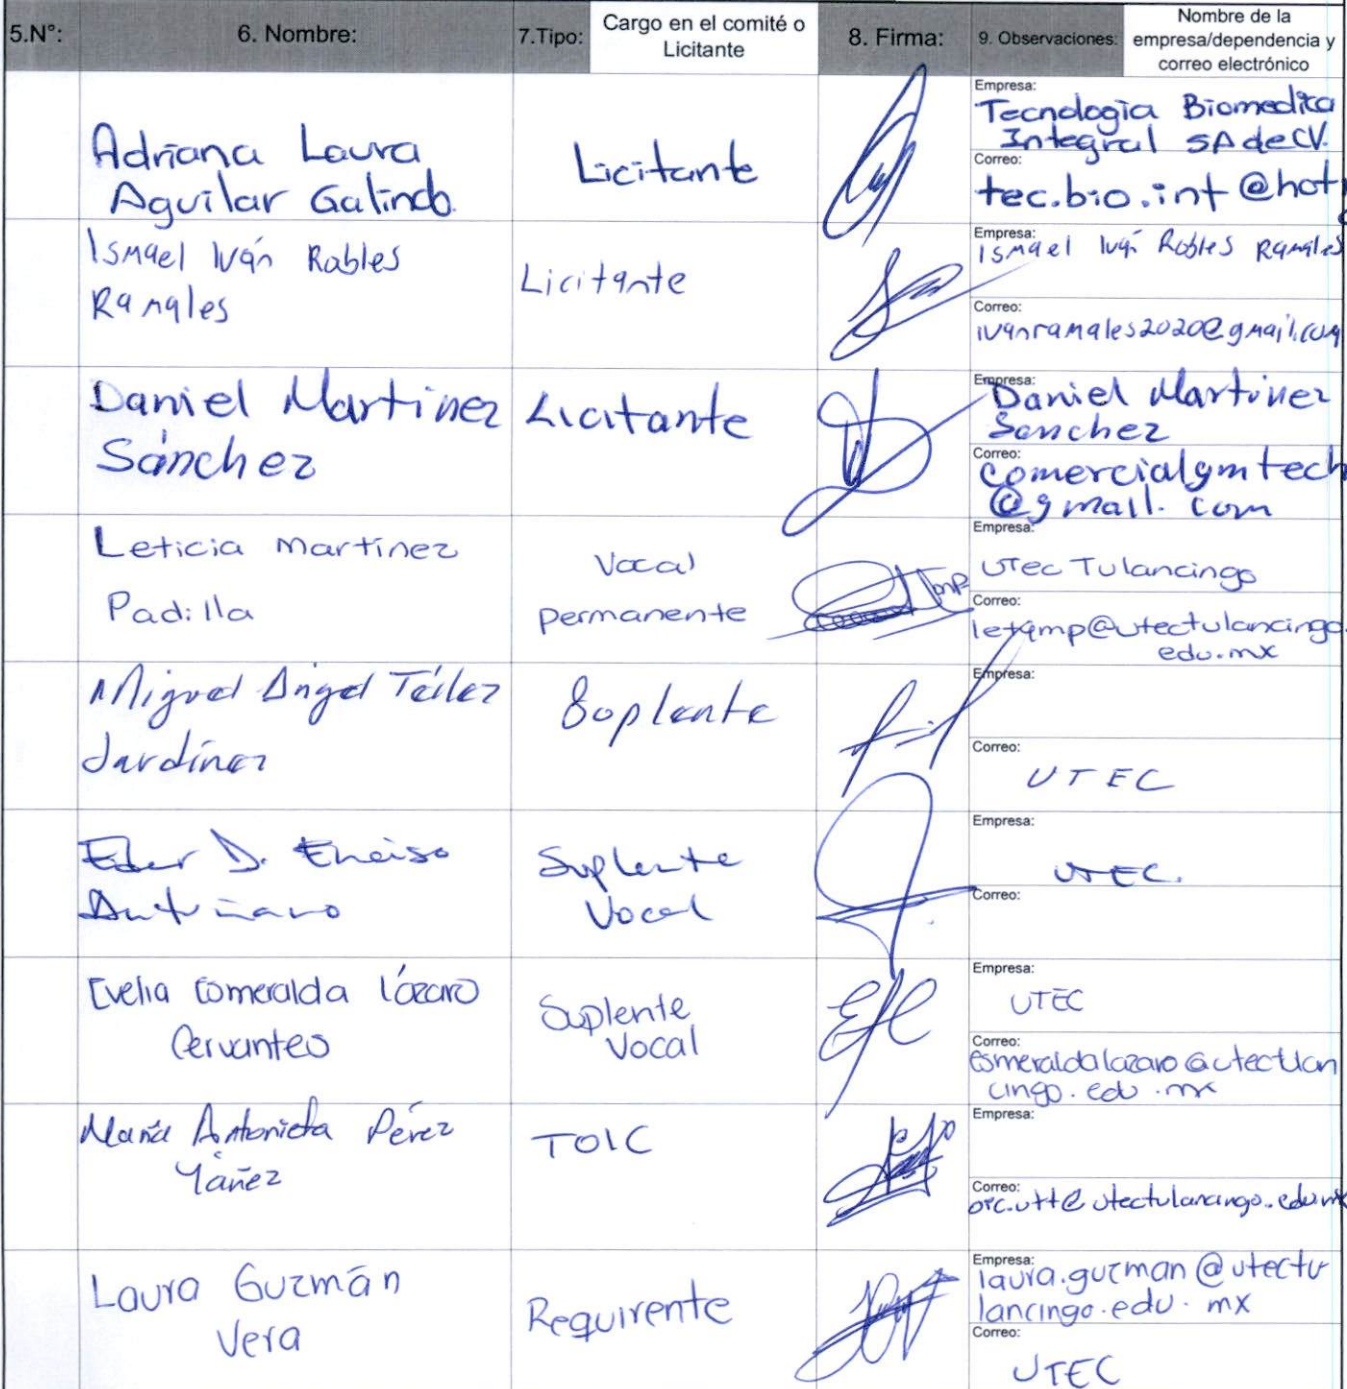 5.N°: 6. Nombre: 7.Tipo: Cargo en el comité o Licitante 8. Firma: 9. Observaciones: Nombre de la empresa/dependencia y correo electrónico
Adriana Laura
Aguilar Galindo.
Licitante
Empresa:
Tecnologia Biomedica
Integral SA de CV.
Correo:
tec.bio.int @hot
Ismael Iván Robles
Ramales
Licitante
Empresa:
Ismael Iván Robles Ramales
Correo:
ivanramales2020@gmail.com
Daniel Martinez
Sánchez
Licitante
Empresa:
Daniel Martinez
Sanchez
Correo:
comercialgmtech
@gmail.com
Leticia Martínez
Padilla
Vocal
permanente
Empresa:
UTec Tulancingo
Correo:
letymp@utectulancingo.
edu.mx
Miguel Angel Téllez
Jardínez
Suplente
Empresa:
Correo:
UTEC
Eder D. Enciso
Suplente
Vocal
Empresa:
UTEC.
Correo:
Evelia Esmeralda Lázaro
Cervantes
Suplente
Vocal
Empresa:
UTEC
Correo:
esmeraldalazaro@utectlan
cingo.edu.mx
María Antonieta Pérez
Yáñez
TOIC
Empresa:
Correo:
oic.utt@utectulancingo.edu.mx
Laura Guzmán
Vera
Requirente
Empresa:
laura.guzman@utectu
lancingo.edu.mx
Correo:
UTEC